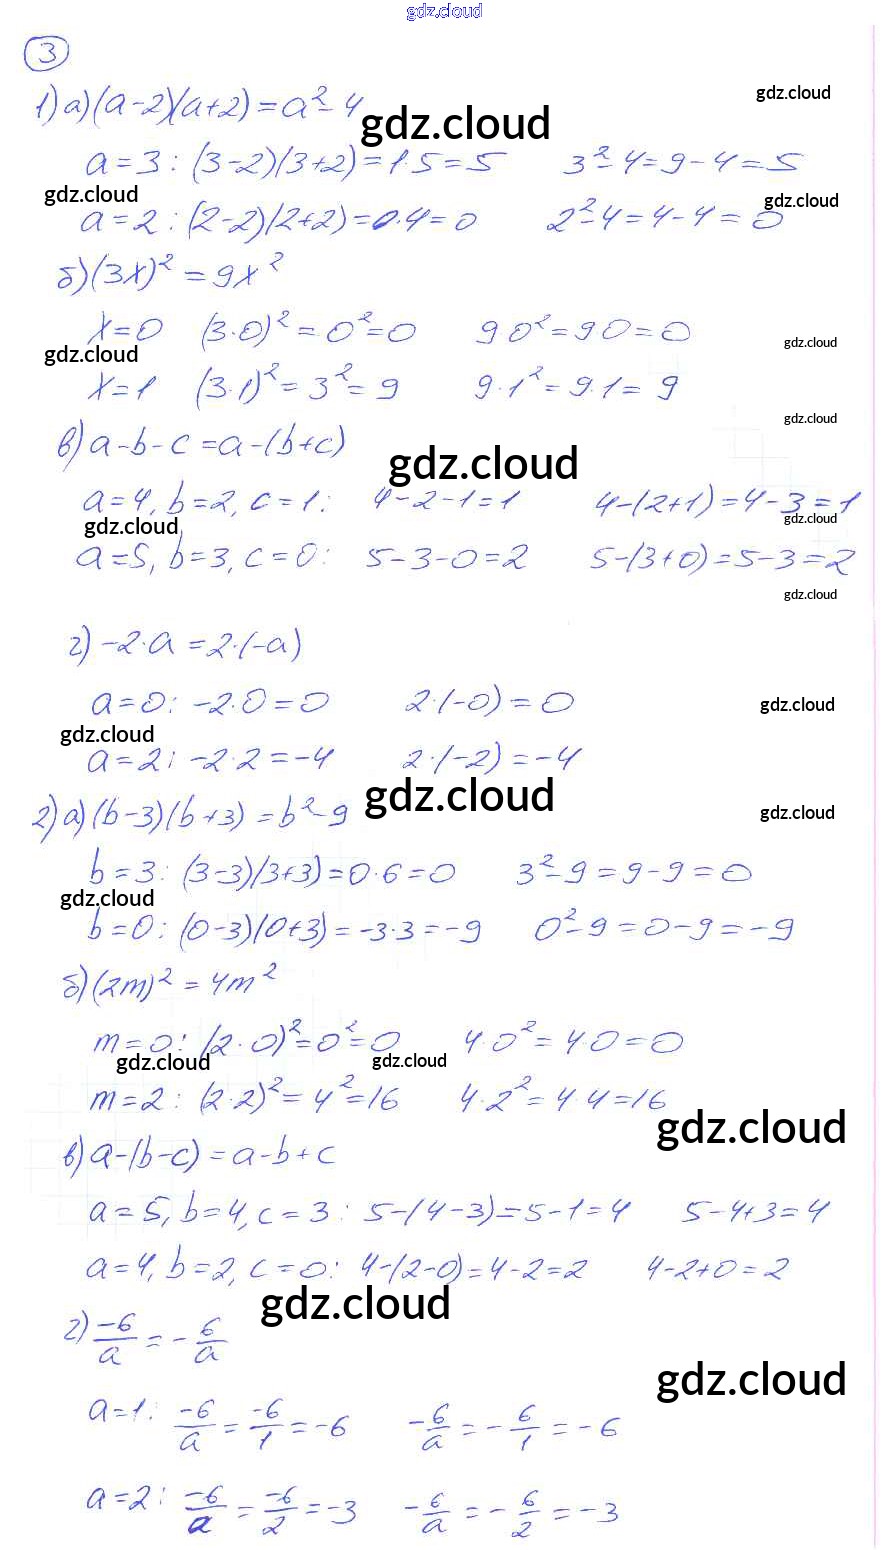 gdz.cloud
3
1) а) (a-2)(a+2) = a²-4
gdz.cloud
gdz.cloud
a=3: (3-2)(3+2)=1·5=5 3²-4=9-4=5
gdz.cloud
gdz.cloud
a=2: (2-2)(2+2)=0·4=0 2²-4=4-4=0
б) (3x)² = 9x²
x=0 (3·0)²=0²=0 9·0²=9·0=0
gdz.cloud
gdz.cloud
x=1 (3·1)²=3²=9 9·1²=9·1=9
gdz.cloud
в) a-b-c=a-(b+c)
gdz.cloud
a=4, b=2, c=1: 4-2-1=1 4-(2+1)=4-3=1
gdz.cloud
gdz.cloud
a=5, b=3, c=0: 5-3-0=2 5-(3+0)=5-3=2
gdz.cloud
г) -2·a=2·(-a)
a=0: -2·0=0 2·(-0)=0
gdz.cloud
gdz.cloud
a=2: -2·2=-4 2·(-2)=-4
gdz.cloud
2) а) (b-3)(b+3)=b²-9
gdz.cloud
b=3: (3-3)(3+3)=0·6=0 3²-9=9-9=0
gdz.cloud
b=0: (0-3)(0+3)=-3·3=-9 0²-9=0-9=-9
б) (2m)²=4m²
m=0: (2·0)²=0²=0 4·0²=4·0=0
gdz.cloud
gdz.cloud
m=2: (2·2)²=4²=16 4·2²=4·4=16
gdz.cloud
в) a-(b-c)=a-b+c
a=5, b=4, c=3: 5-(4-3)=5-1=4 5-4+3=4
a=4, b=2, c=0: 4-(2-0)=4-2=2 4-2+0=2
gdz.cloud
г) -6/a = -6/a
gdz.cloud
a=1: -6/a = -6/1 = -6 -6/a = -6/1 = -6
a=2: -6/a = -6/2 = -3 -6/a = -6/2 = -3